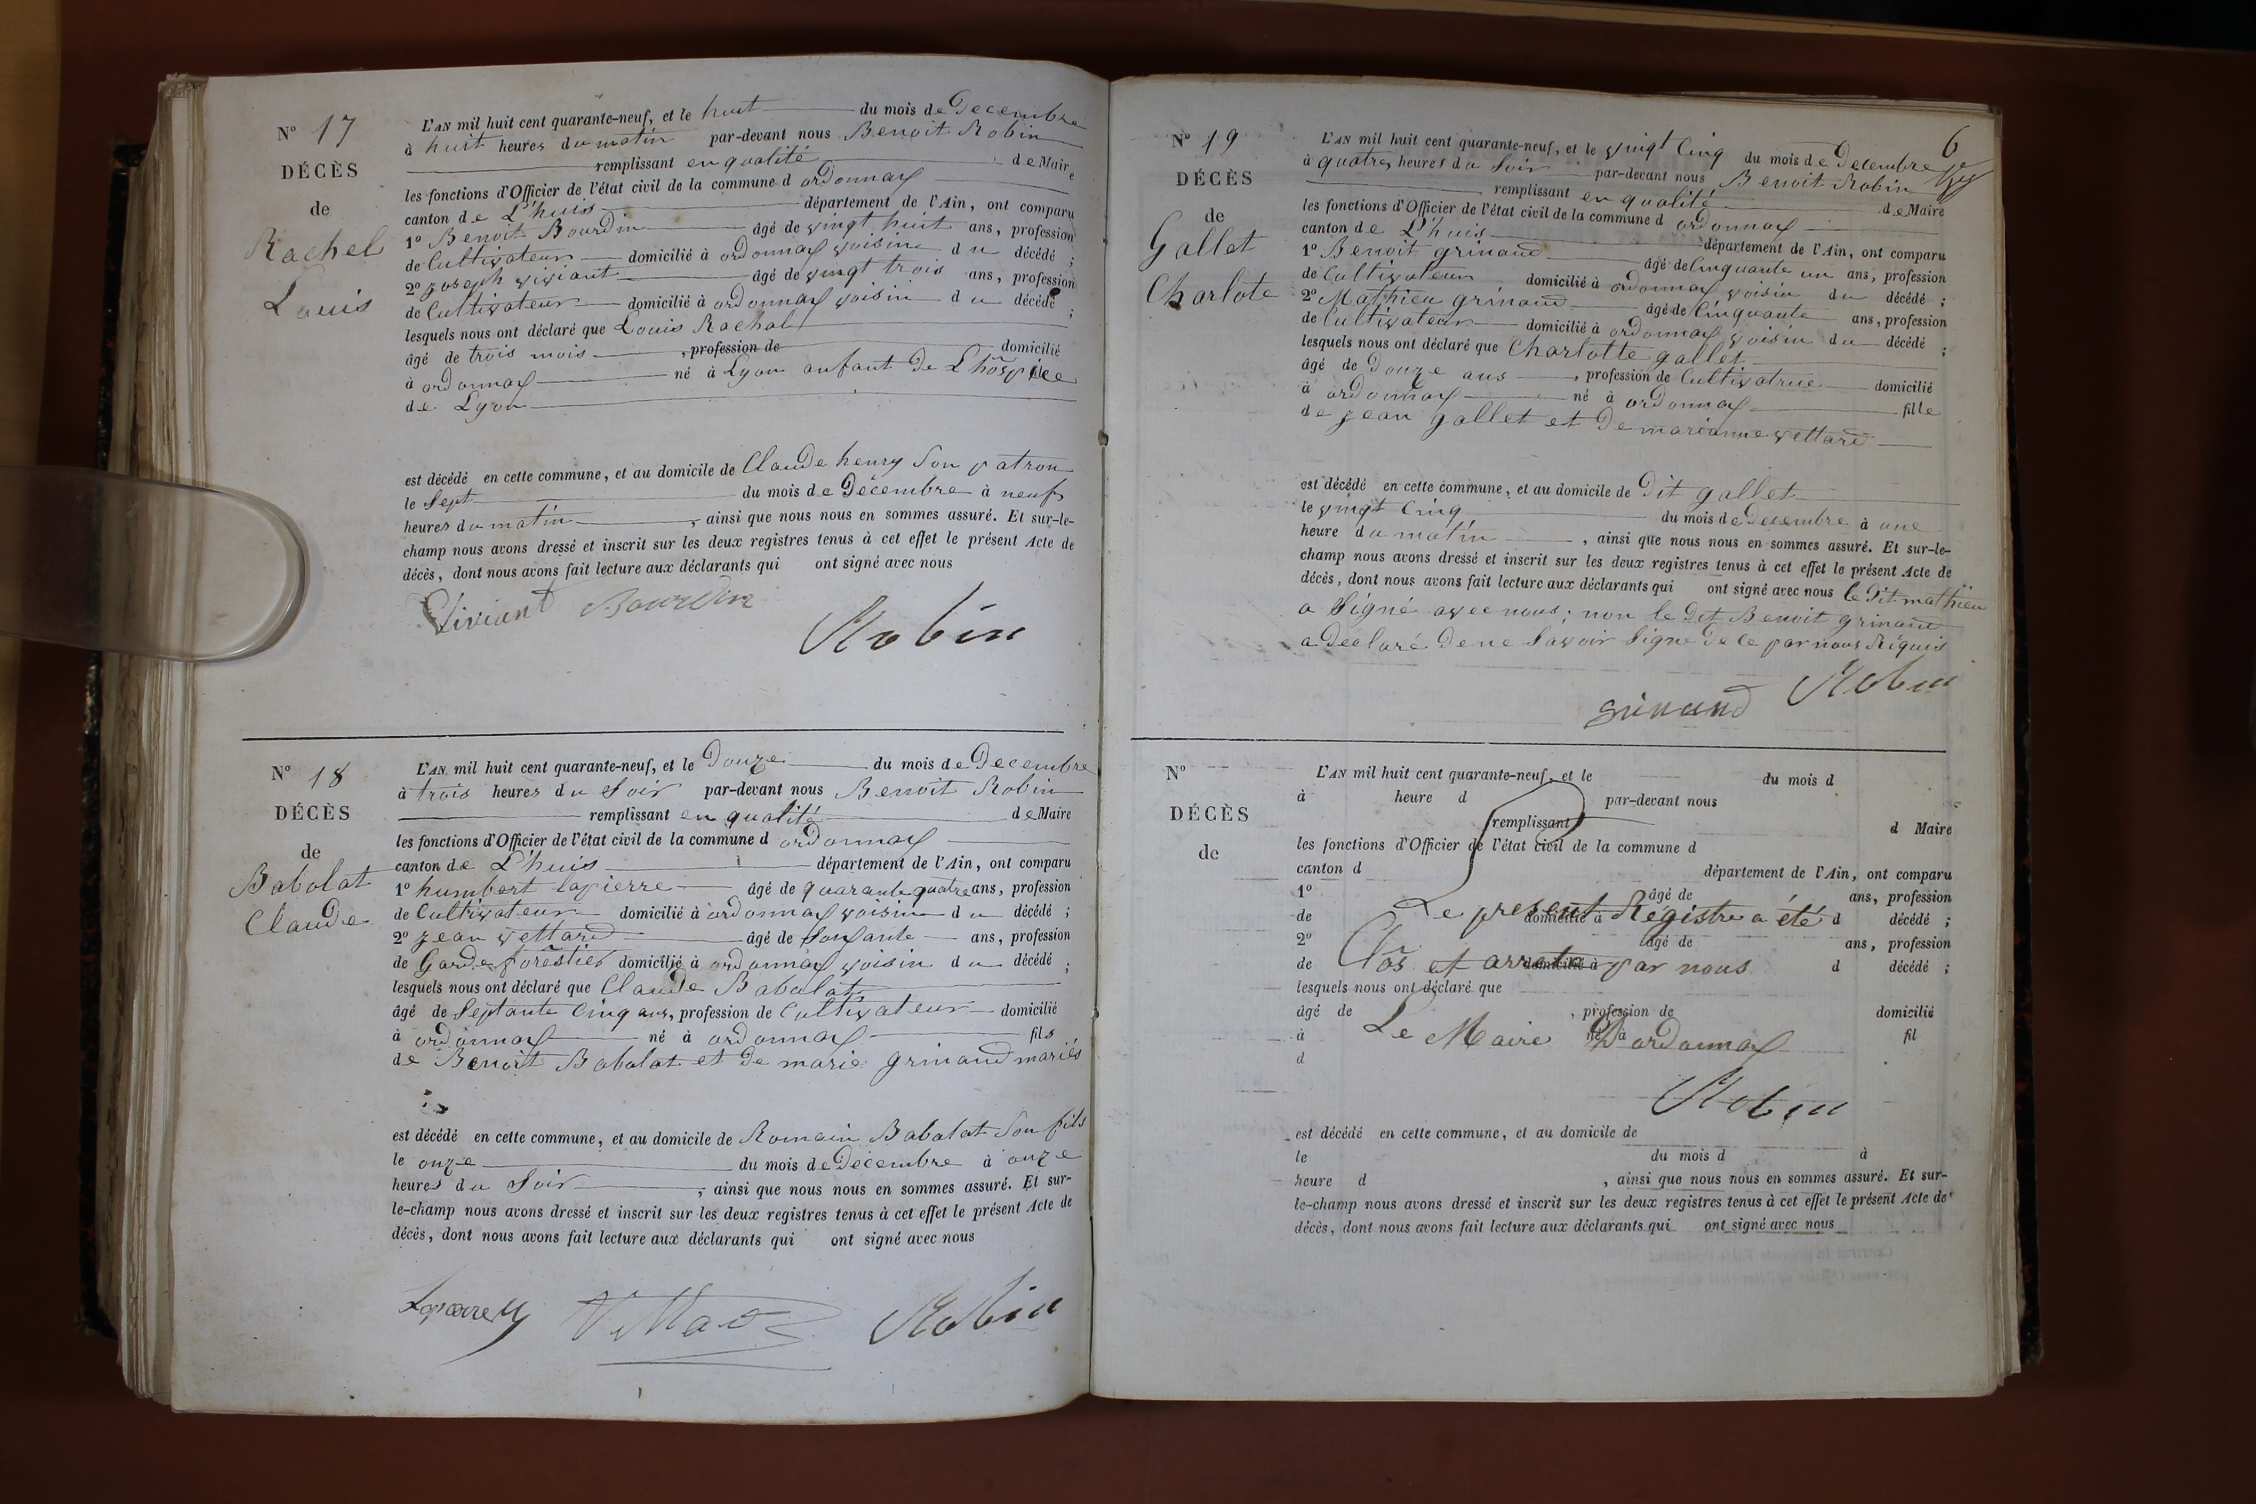 N° 17
DÉCÈS
de
Rachel
Louis
L'AN mil huit cent quarante-neuf, et le huit du mois de Decembre
à huit heures du matin par-devant nous Benoit Robin
remplissant en qualité de Maire
les fonctions d'Officier de l'état civil de la commune d ordonnax
canton de L'huis département de l'Ain, ont comparu
1° Benoit Bourdin âgé de vingt huit ans, profession
de Cultivateur domicilié à ordonnax voisin du décédé ;
2° joseph viviant âgé de vingt trois ans, profession
de Cultivateur domicilié à ordonnax voisin du décédé ;
lesquels nous ont déclaré que Louis Rachal
âgé de trois mois , profession de domicilié
à ordonnax né à Lyon anfant De L'hospice
de Lyon
est décédé en cette commune, et au domicile de Claude henry Son patron
le Sept du mois de Décembre à neuf
heures du matin , ainsi que nous nous en sommes assuré. Et sur-le-
champ nous avons dressé et inscrit sur les deux registres tenus à cet effet le présent Acte de
décès, dont nous avons fait lecture aux déclarants qui ont signé avec nous
Viviant Bourdin
Robin
N° 18
DÉCÈS
de
Babolat
Claude
L'AN mil huit cent quarante-neuf, et le Douze du mois de Decembre
à trois heures du Soir par-devant nous Benoit Robin
remplissant en qualité de Maire
les fonctions d'Officier de l'état civil de la commune d ordonnax
canton de L'huis département de l'Ain, ont comparu
1° humbert lapierre âgé de quarante quatre ans, profession
de Cultivateur domicilié à ordonnax voisin du décédé ;
2° jean vettard âgé de Soixante ans, profession
de Garde forestier domicilié à ordonnax voisin du décédé ;
lesquels nous ont déclaré que Claude Babolat
âgé de Septante Cinq ans, profession de Cultivateur domicilié
à ordonnax né à ordonnax fils
de Benoit Babolat et de marie grinand mariés
est décédé en cette commune, et au domicile de Romain Babolat Son fils
le onze du mois de Décembre à onze
heures du Soir , ainsi que nous nous en sommes assuré. Et sur-
le-champ nous avons dressé et inscrit sur les deux registres tenus à cet effet le présent Acte de
décès, dont nous avons fait lecture aux déclarants qui ont signé avec nous
Robin
6
N° 19
DÉCÈS
de
Gallet
Charlote
L'AN mil huit cent quarante-neuf, et le vingt Cinq du mois de Decembre
à quatres heures du Soir par-devant nous Benoit Robin
remplissant en qualité de Maire
les fonctions d'Officier de l'état civil de la commune d ordonnax
canton de L'huis département de l'Ain, ont comparu
1° Benoit grinand âgé de Cinquante un ans, profession
de Cultivateur domicilié à ordonnax voisin du décédé ;
2° Mathieu grinand âgé de Cinquante ans, profession
de Cultivateur domicilié à ordonnax voisin du décédé ;
lesquels nous ont déclaré que Charlotte gallet
âgé de Douze ans , profession de Cultivatrice domicilié
à ordonnax né à ordonnax fille
de jean gallet et De marianne vettard
est décédé en cette commune, et au domicile de Dit gallet
le vingt Cinq du mois de Decembre à une
heure du matin , ainsi que nous nous en sommes assuré. Et sur-le-
champ nous avons dressé et inscrit sur les deux registres tenus à cet effet le présent Acte de
décès, dont nous avons fait lecture aux déclarants qui ont signé avec nous le Dit mathieu
a Signé avec nous ; non le Dit Benoit grinand
a Declaré De ne Savoir Signe De ce par nous Réquis
grinand Robin
N°
DÉCÈS
de
L'AN mil huit cent quarante-neuf, et le du mois d
à heure d par-devant nous
remplissant d Maire
les fonctions d'Officier de l'état civil de la commune d
canton d département de l'Ain, ont comparu
1° âgé de ans, profession
Le present Régistre a été
de domicilié à d décédé ;
2° âgé de ans, profession
Clos et arrete par nous
de domicilié à d décédé ;
lesquels nous ont déclaré que
âgé de , profession de domicilié
Le Maire D'ordonnax
à né à fil
d
Robin
est décédé en cette commune, et au domicile de
le du mois d à
heure d , ainsi que nous nous en sommes assuré. Et sur-
le-champ nous avons dressé et inscrit sur les deux registres tenus à cet effet le présent Acte de
décès, dont nous avons fait lecture aux déclarants qui ont signé avec nous